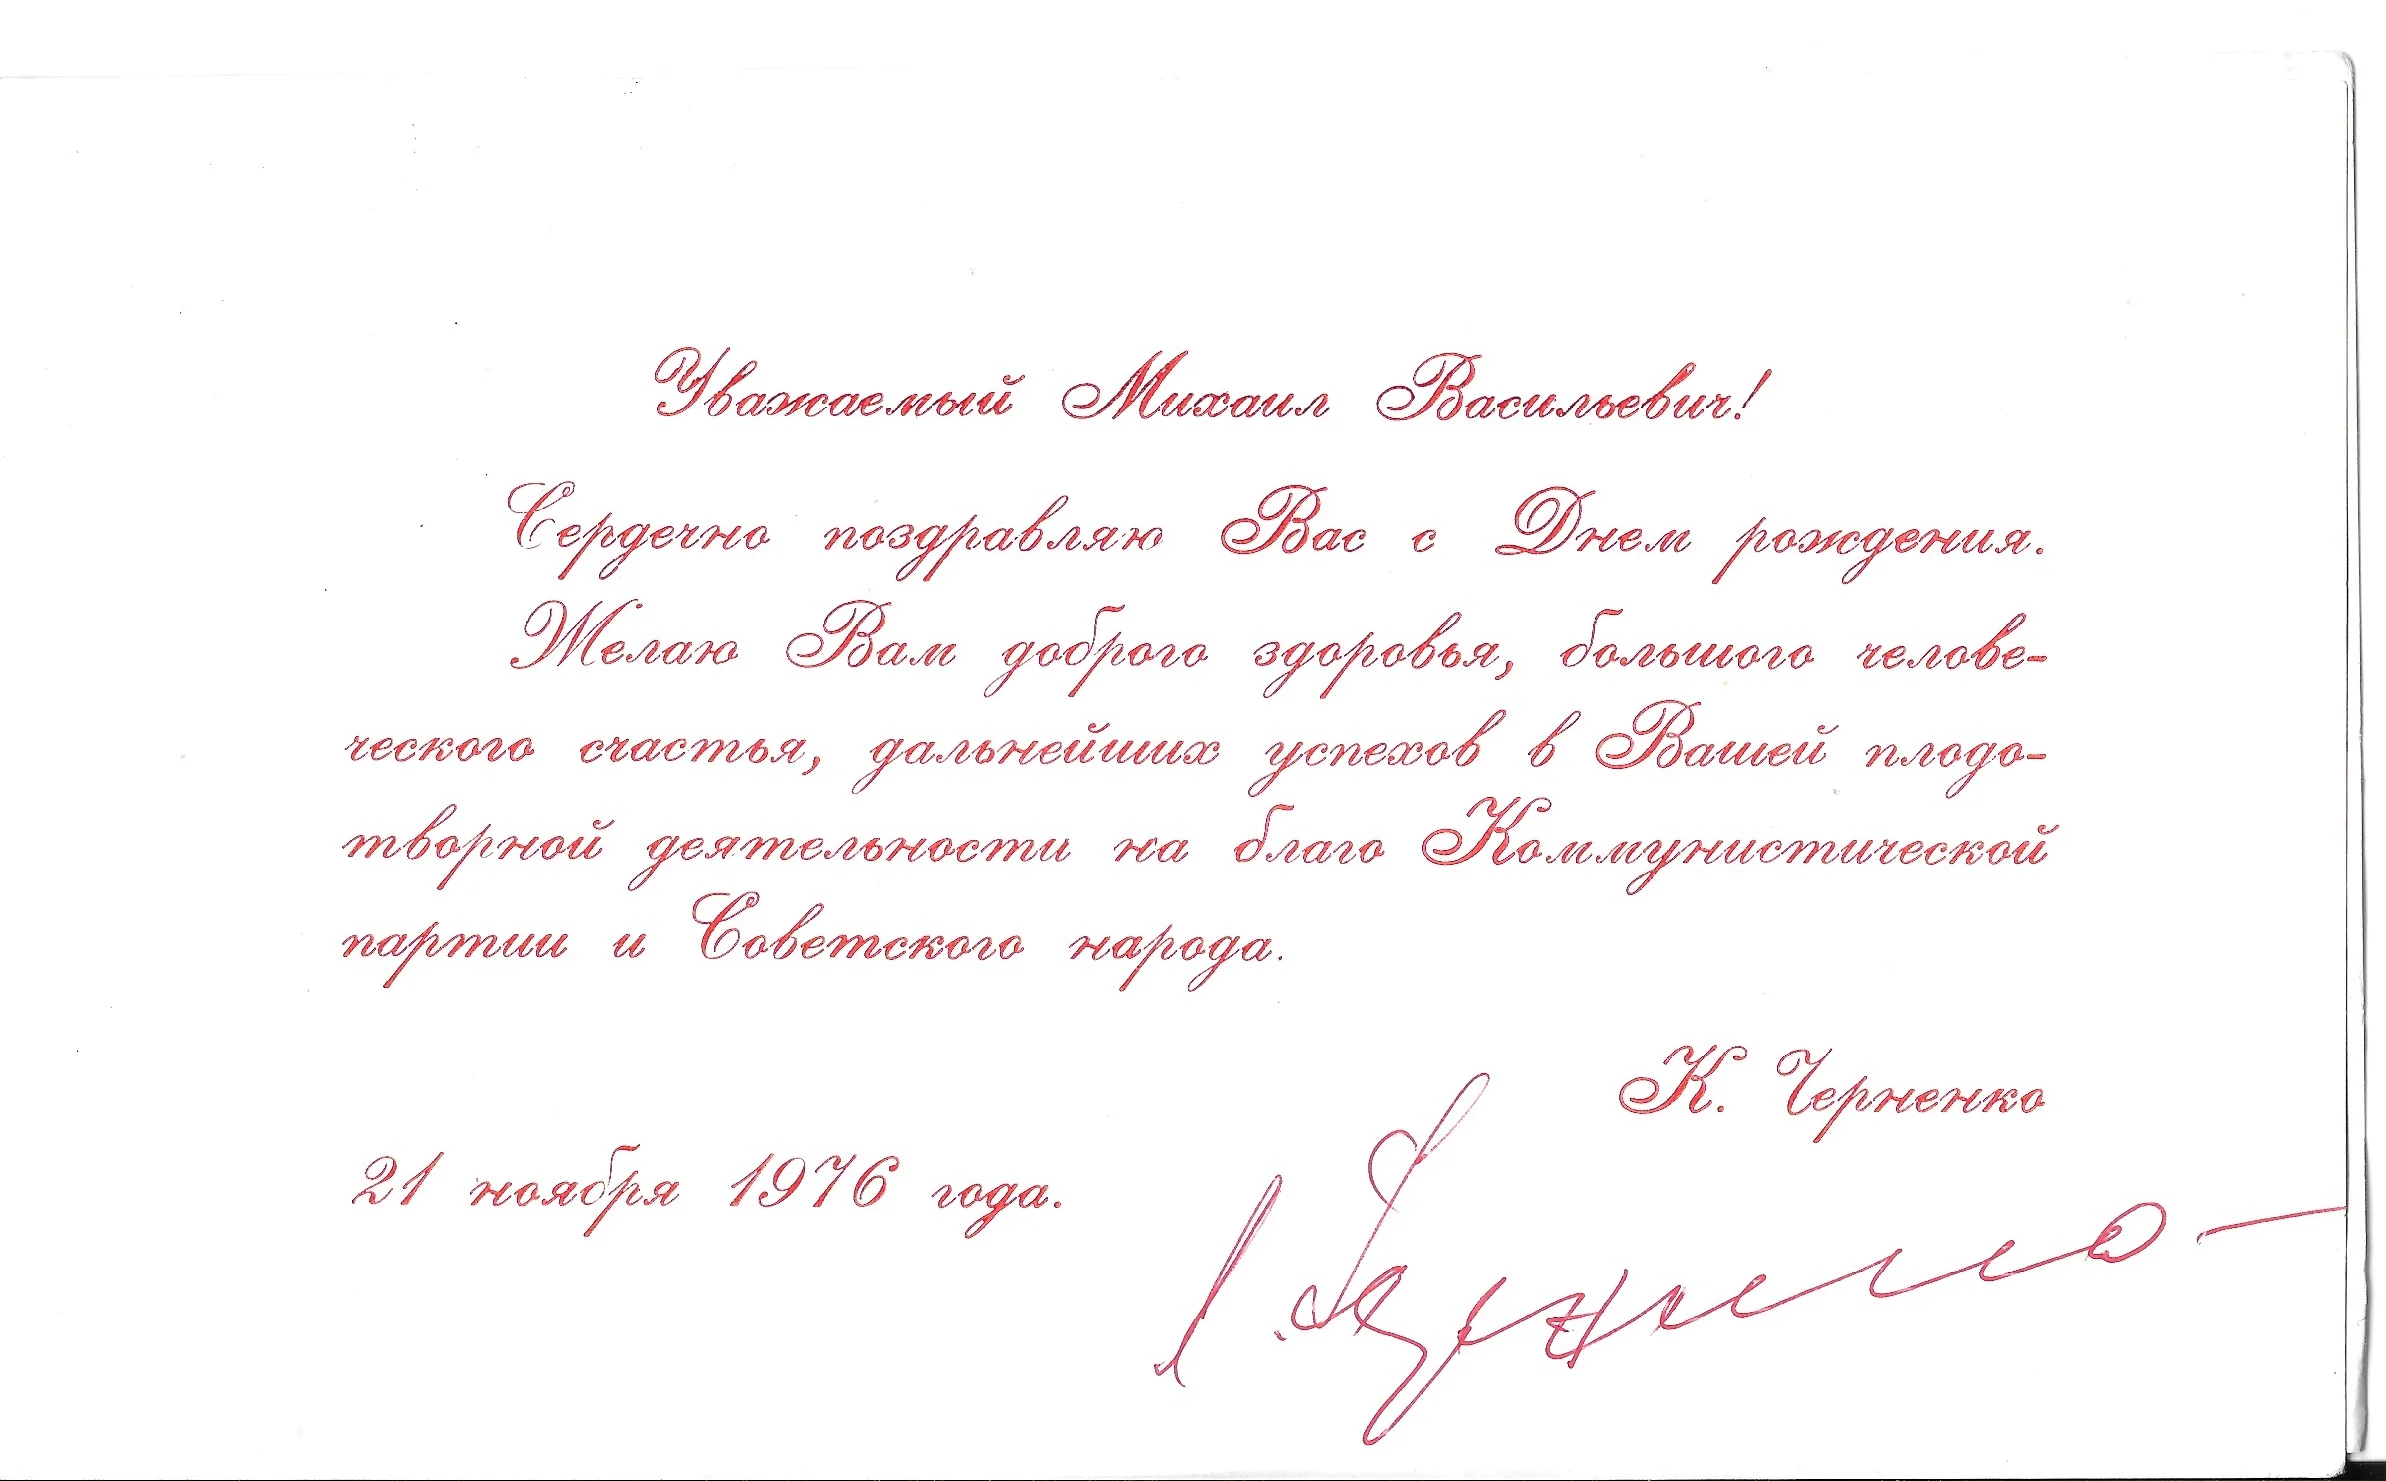 Уважаемый Михаил Васильевич!
Сердечно поздравляю Вас с Днем рождения.
Желаю Вам доброго здоровья, большого челове-
ческого счастья, дальнейших успехов в Вашей плодо-
творной деятельности на благо Коммунистической
партии и Советского народа.
К. Черненко
21 ноября 1976 года.